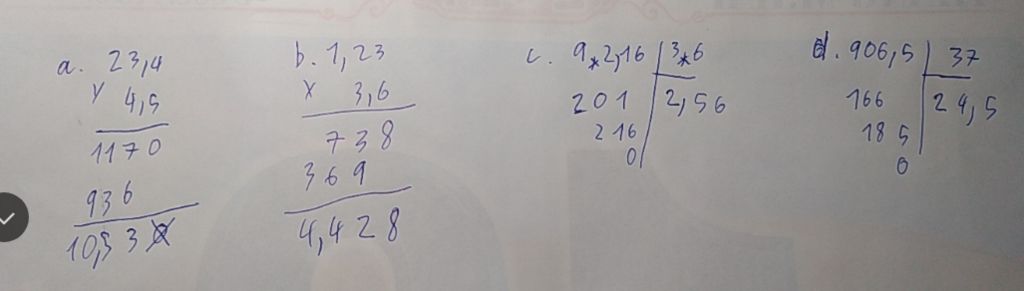 a. 23,4
x 4,5
1170
936
10,530
b. 1,23
x 3,6
738
369
4,428
c. 9,2,16 | 3,6
201 | 2,56
216
0
d. 906,5 | 37
166 | 24,5
185
0